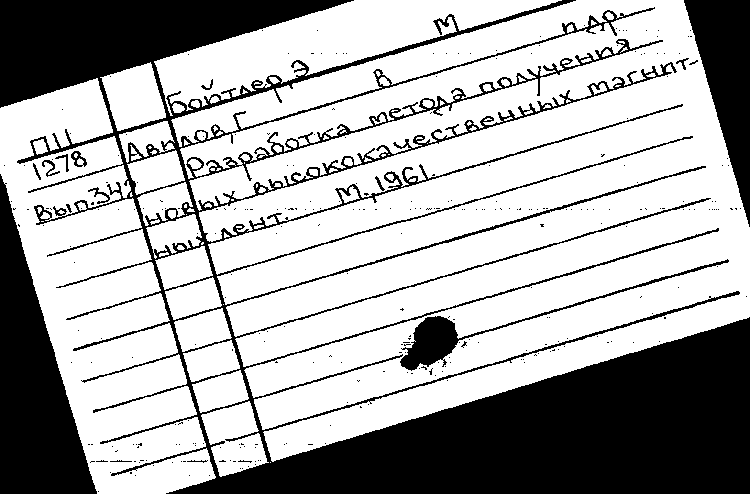 Бойтлер, Э М
ПЦ Авилов, Г В п др.
1278 Разработка метода получения
Вып. 342 новых высококачественных магнит-
ных лент. М., 1961.